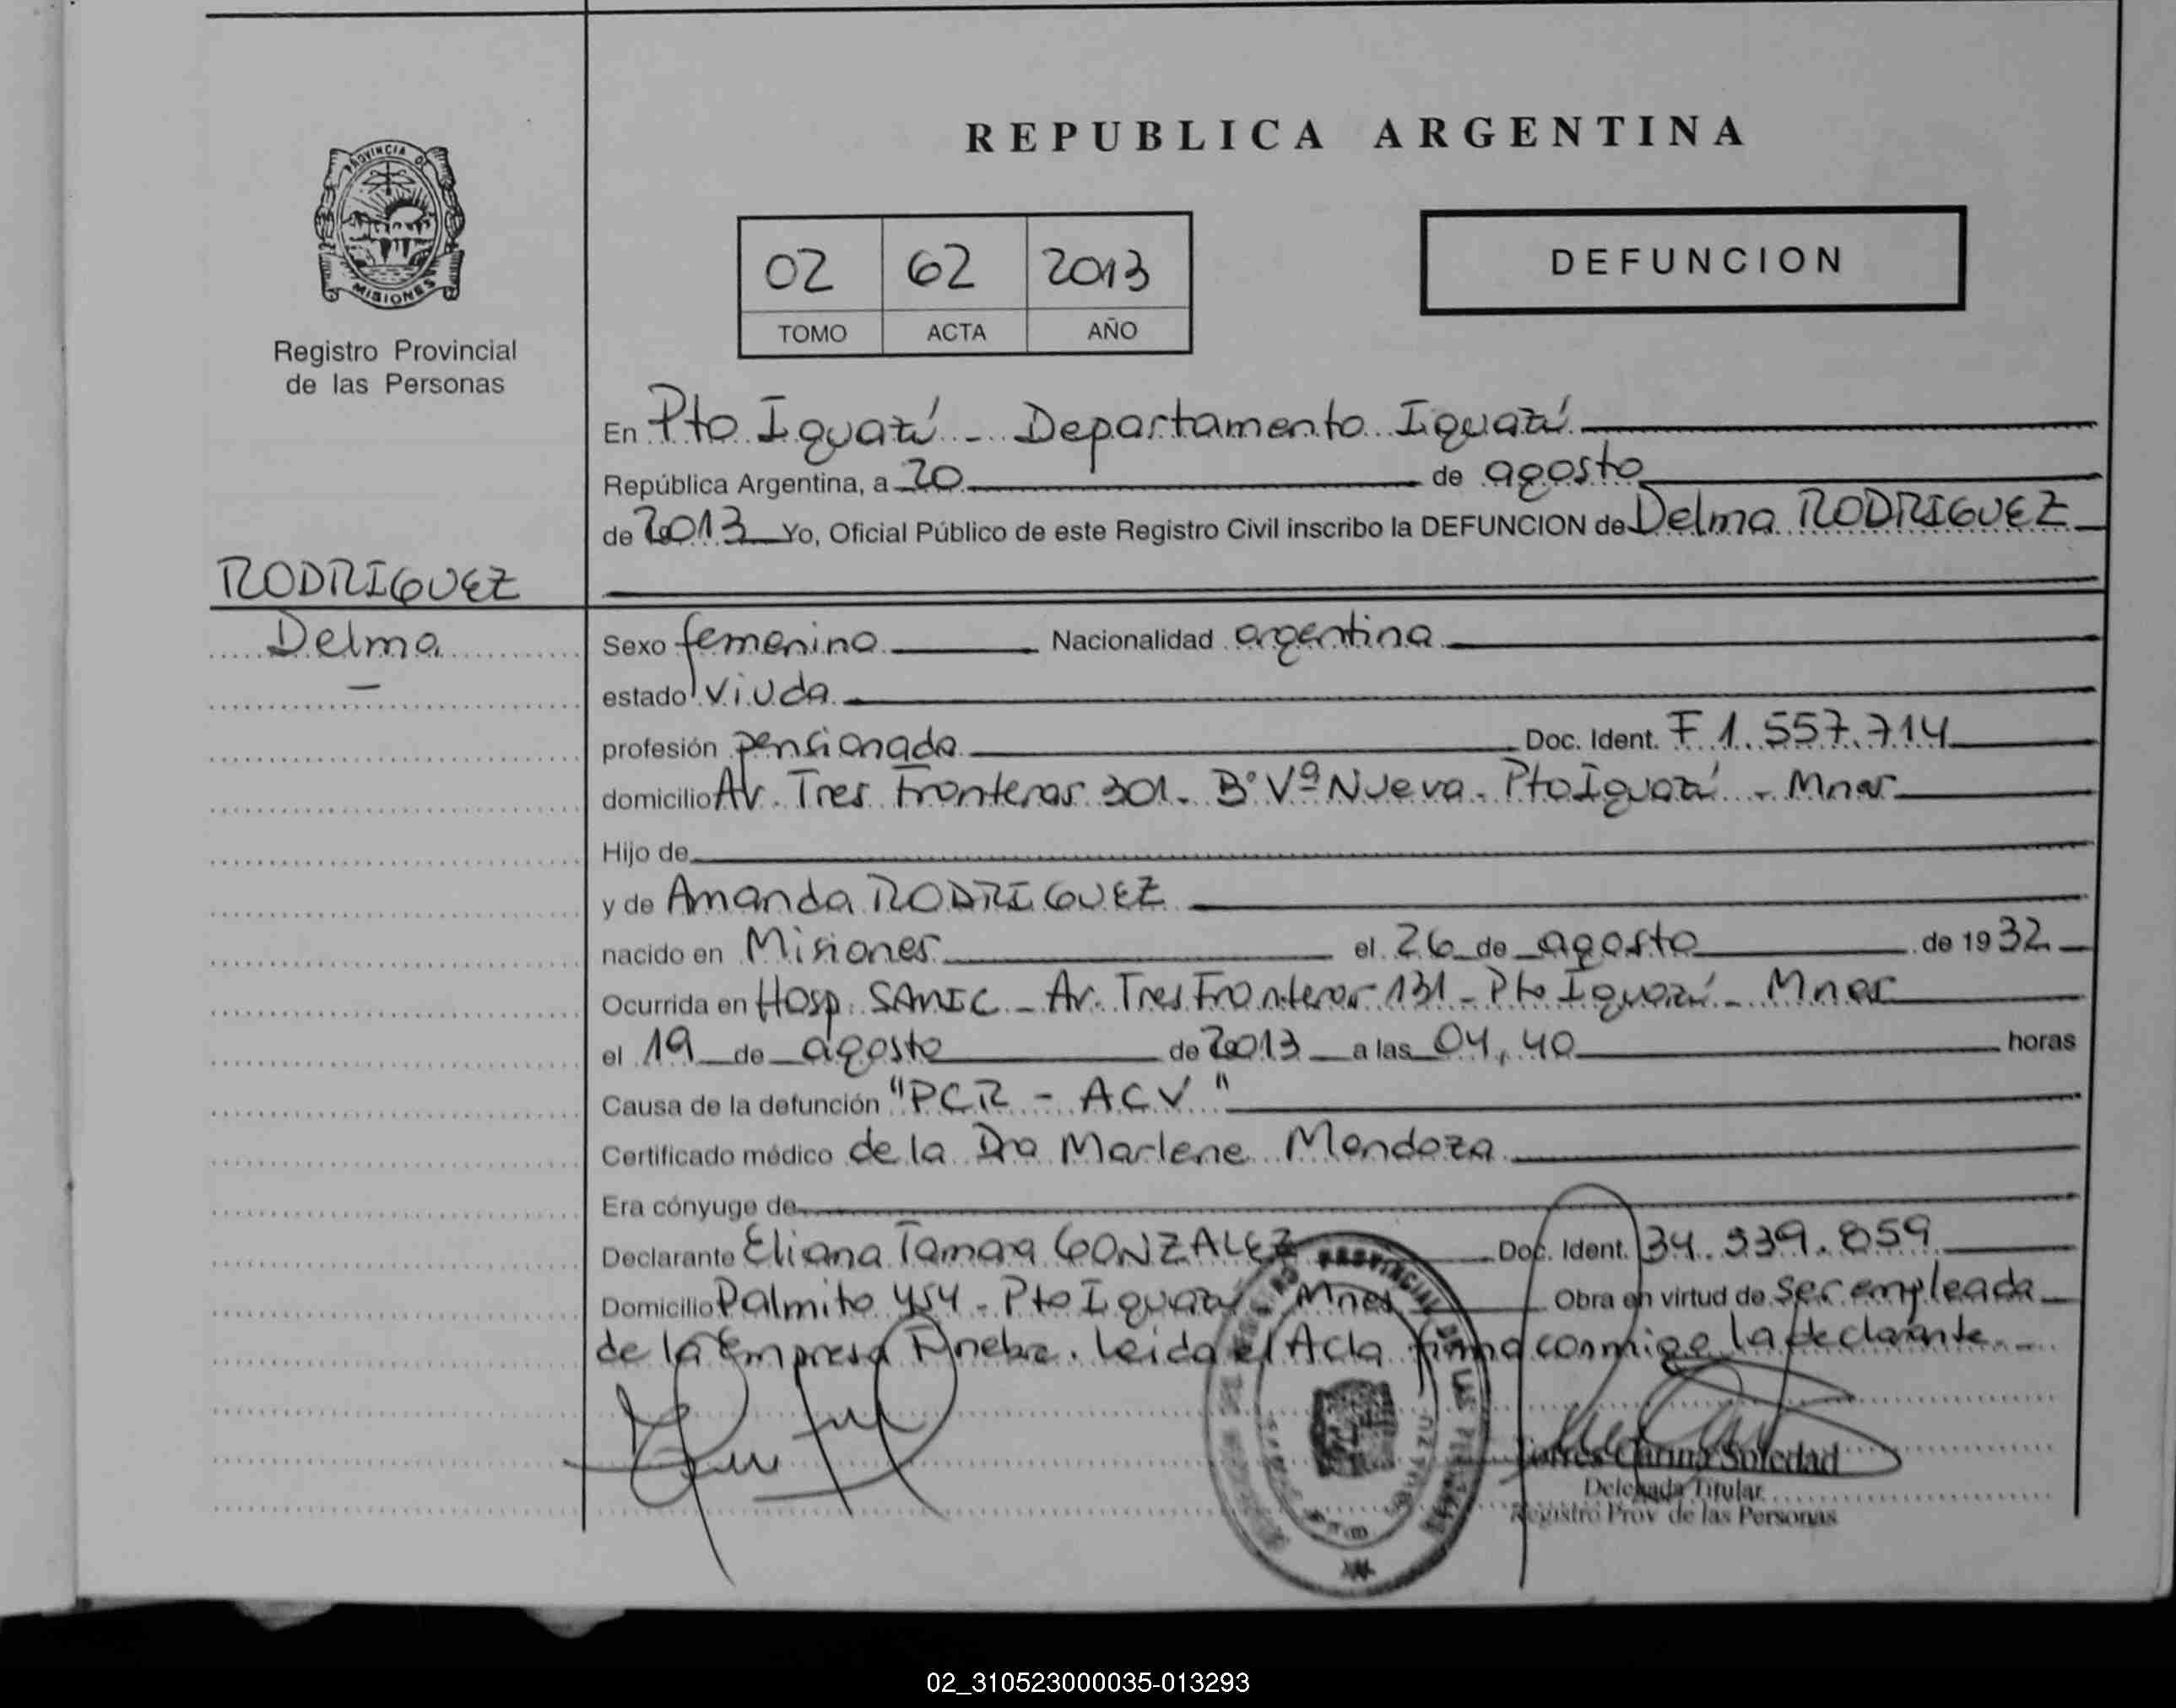 REPUBLICA ARGENTINA
PROVINCIA DE
MISIONES
Registro Provincial
de las Personas
02 62 2013
TOMO ACTA AÑO
DEFUNCION
En Pto Iguazú - Departamento Iguazú
República Argentina, a 20 de agosto
de 2013 Yo, Oficial Público de este Registro Civil inscribo la DEFUNCION de Delma RODRIGUEZ
RODRIGUEZ
Delma
Sexo femenino Nacionalidad argentina
estado viuda
profesión pensionada Doc. Ident. F 1.557.714
domicilio Av. Tres Fronteras 301 - B° Vª Nueva - Pto Iguazú - Mnes
Hijo de
y de Amanda RODRIGUEZ
nacido en Misiones el 26 de agosto de 1932
Ocurrida en Hosp. SAMIC - Av. Tres Fronteras 131 - Pto Iguazú - Mnes
el 19 de agosto de 2013 a las 04,40 horas
Causa de la defunción "PCR - ACV"
Certificado médico de la Dra Marlene Mendoza
Era cónyuge de
Declarante Eliana Tamara GONZALEZ Doc. Ident. 34.939.859
Domicilio Palmito 454 - Pto Iguazú - Mnes Obra en virtud de ser empleada
de la Empresa Fúnebre. Leida el Acta firma conmigo la declarante.-
Torres Carina Soledad
Delegada Titular
Registro Prov de las Personas
02_310523000035-013293